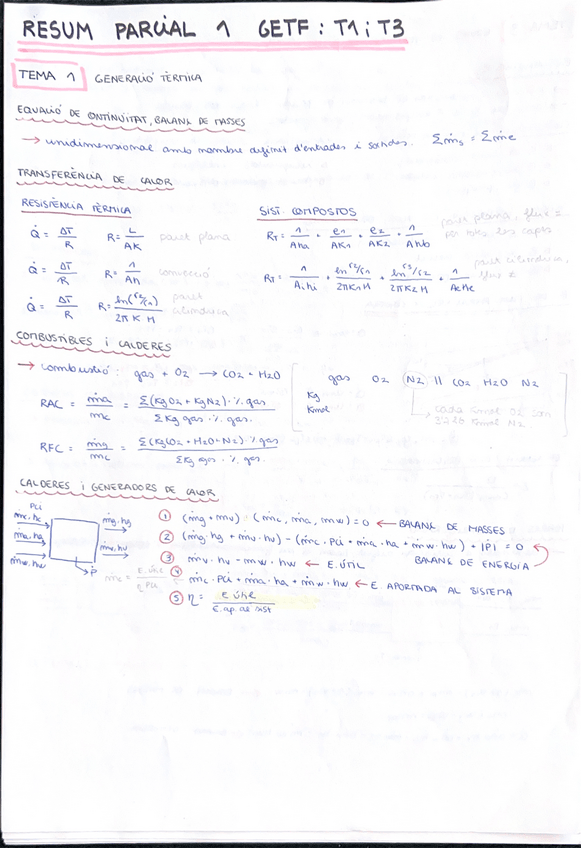 RESUM PARCIAL 1 GETF: T1 i T3
TEMA 1 GENERACIÓ TÈRMICA
EQUACIÓ DE CONTINUITAT, BALANÇ DE MASSES
→ unidimensional amb nombre definit d'entrades i sortides. Σṁs = Σṁe
TRANSFERÈNCIA DE CALOR
RESISTÈNCIA TÈRMICA
Q̇ = ΔT/R R = L/AK paret plana
Q̇ = ΔT/R R = 1/Ah convecció
Q̇ = ΔT/R R = ln(r2/r1)/2πKH paret cilíndrica
SIST. COMPOSTOS
RT = 1/Aha + e1/AK1 + e2/AK2 + 1/Ahb paret plana, flux ⊥ per totes les capes
RT = 1/Aihi + ln r2/r1/2πK1H + ln r3/r2/2πK2H + 1/Aehe paret cilíndrica, flux
COMBUSTIBLES i CALDERES
→ combustió: gas + O2 → CO2 + H2O
gas O2 N2 || CO2 H2O N2
Kg
Kmol
cada Kmol O2 són
Kmol N2
RAC = ṁa/ṁc = Σ(KgO2 + KgN2)·% gas/ΣKg gas · % gas
RFC = ṁg/ṁc = Σ(KgCO2 + H2O + N2)·% gas/ΣKg gas · % gas
CALDERES i GENERADORS DE CALOR
PCi
ṁc·hc
ṁa·ha
ṁw·hw
ṁg·hg
ṁv·hv
P
ṁc = E.útil/η PCi
① (ṁg + ṁv) - (ṁc, ṁa, ṁw) = 0 ← BALANÇ DE MASSES
② (ṁg·hg + ṁv·hv) - (ṁc·PCi + ṁa·ha + ṁw·hw) + |P| = 0
BALANÇ DE ENERGIA
③ ṁv·hv - ṁw·hw ← E.ÚTIL
④ ṁc·PCi + ṁa·ha + ṁw·hw ← E APORTADA AL SISTEMA
⑤ η = E útil/E.ap.al sist